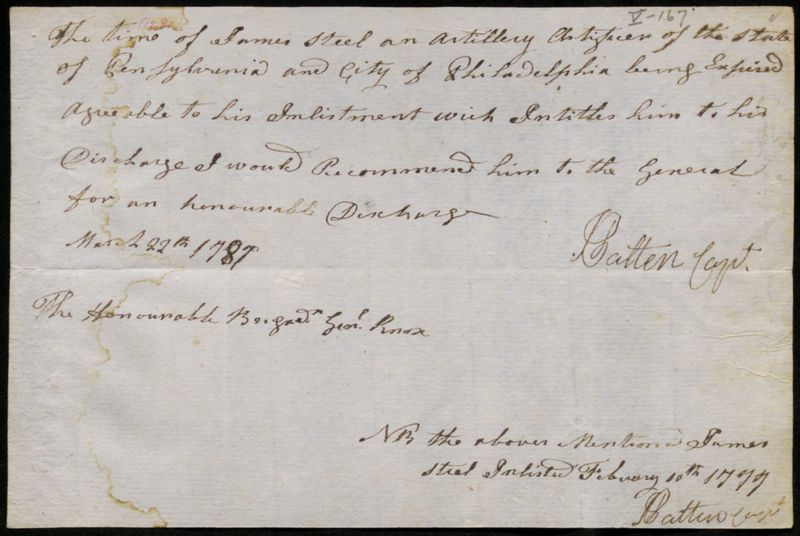 V-167
The time of James Steel an Artillery Artificer of the State
of Pensylvenia and City of Philadelphia being Expired
Agreeable to his Inlistment wich Intitles him to his
Discharge I would Recommend him to the General
for an honourable Discharge
March 22th 1781
Patten Capt.
The Honourable Brigadr. Genl. Knox
NB the above Mentiond James
Steel Inlisted Febuary 10th 1777
Patten Capt